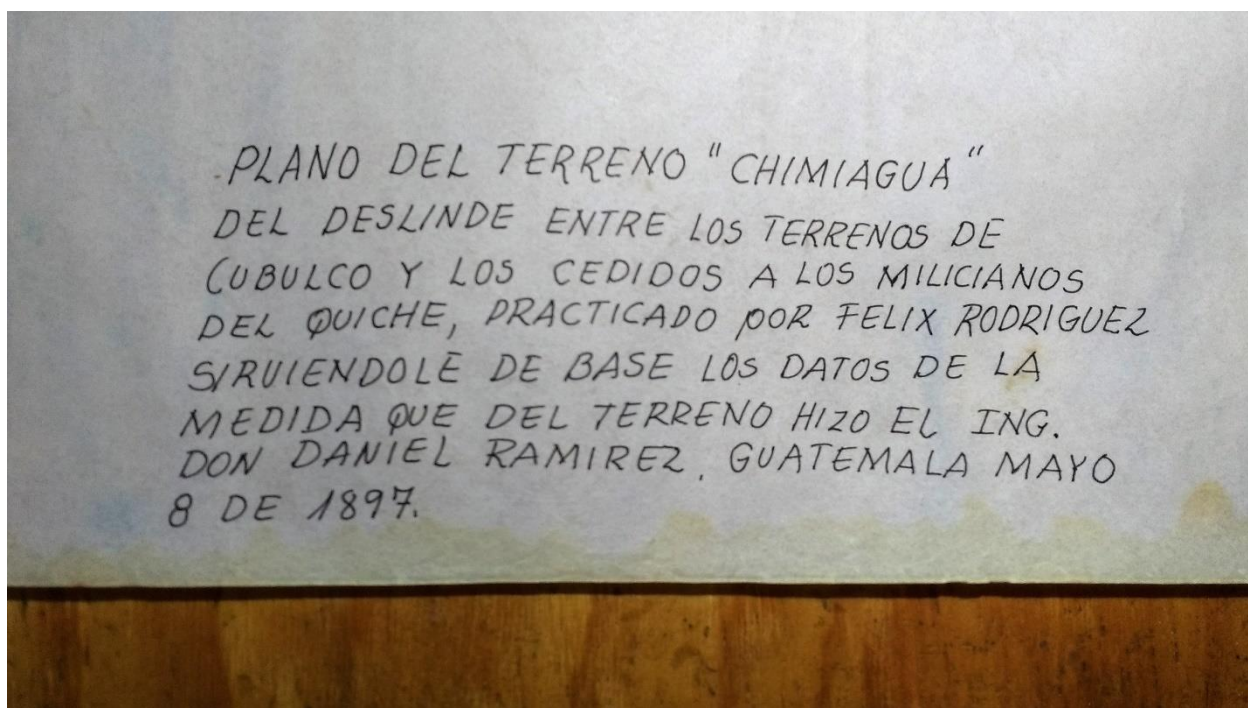 PLANO DEL TERRENO "CHIMIAGUA"
DEL DESLINDE ENTRE LOS TERRENOS DE
CUBULCO Y LOS CEDIDOS A LOS MILICIANOS
DEL QUICHE, PRACTICADO POR FELIX RODRIGUEZ
SIRUIENDOLE DE BASE LOS DATOS DE LA
MEDIDA QUE DEL TERRENO HIZO EL ING.
DON DANIEL RAMIREZ. GUATEMALA MAYO
8 DE 1897.